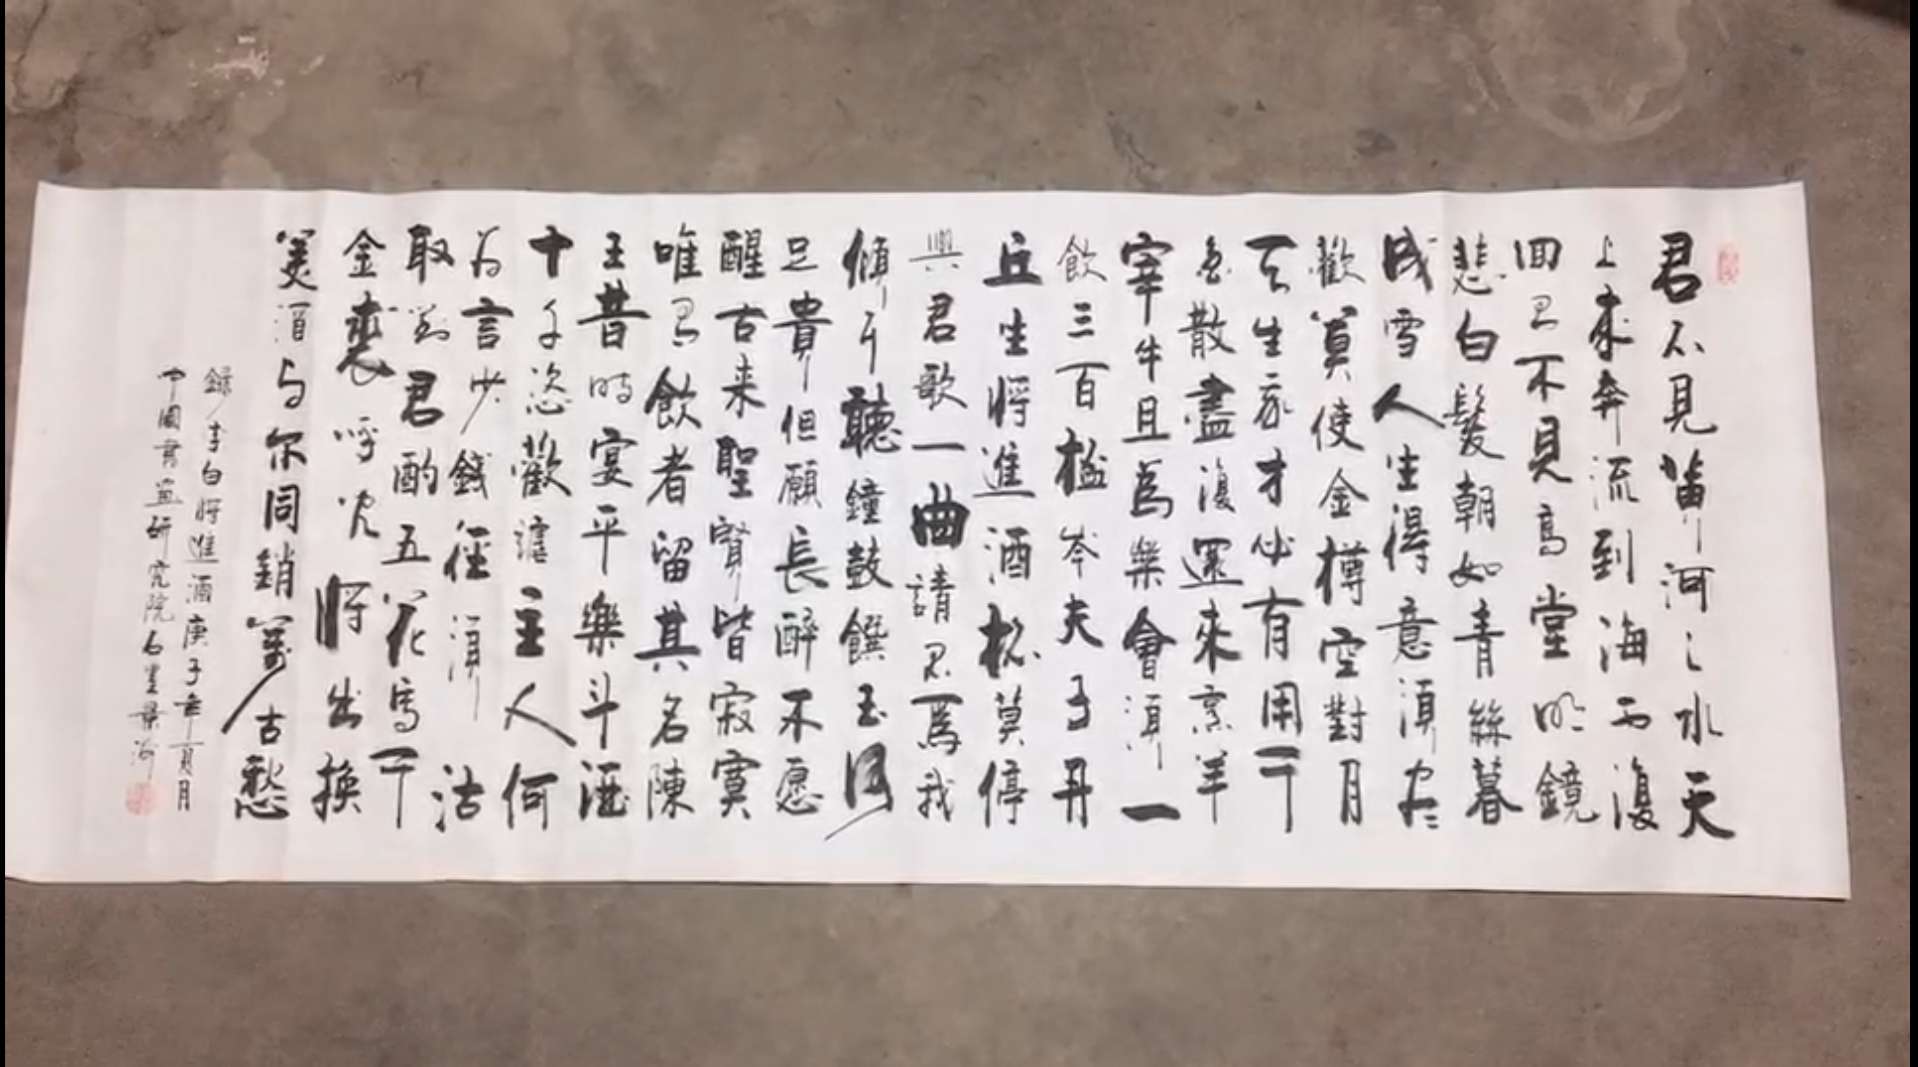 君不見黄河之水天
上來奔流到海不復
回君不見高堂明鏡
悲白髮朝如青絲暮
成雪人生得意須尽
歡莫使金樽空對月
天生我才必有用千
金散盡復還來烹羊
宰牛且為樂會須一
飲三百杯岑夫子丹
丘生將進酒杯莫停
與君歌一曲請君為我
傾耳聽鐘鼓饌玉何
足貴但願長醉不愿
醒古来聖賢皆寂寞
唯有飲者留其名陳
王昔時宴平樂斗酒
十千恣歡謔主人何
为言少錢徑須沽
取对君酌五花馬千
金裘呼児將出換
美酒与尔同銷萬古愁
録李白將進酒庚子年夏月
中國書画研究院